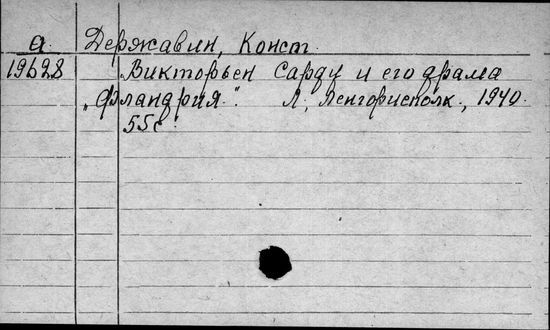 а. Державин, Конст.
19628 Викторьен Сарду и его драма
„Фландрия“. Л., Ленгорисполк., 1940.
55с.